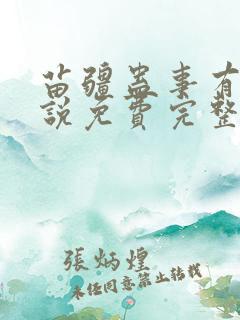 苗疆蛊事有
說免費完整
張炳煌
未经同意禁止转载